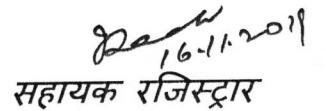 16.11.2019
सहायक रजिस्ट्रार